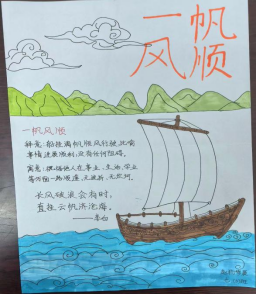 一帆
风顺
一帆风顺
释义：船挂满帆顺风行驶，比喻
事情进展顺利，没有任何阻碍。
寓意：祝福他人在事业、生活、学业
等方面一路顺遂，无波折、无坎坷。
长风破浪会有时，
直挂云帆济沧海。
——李白